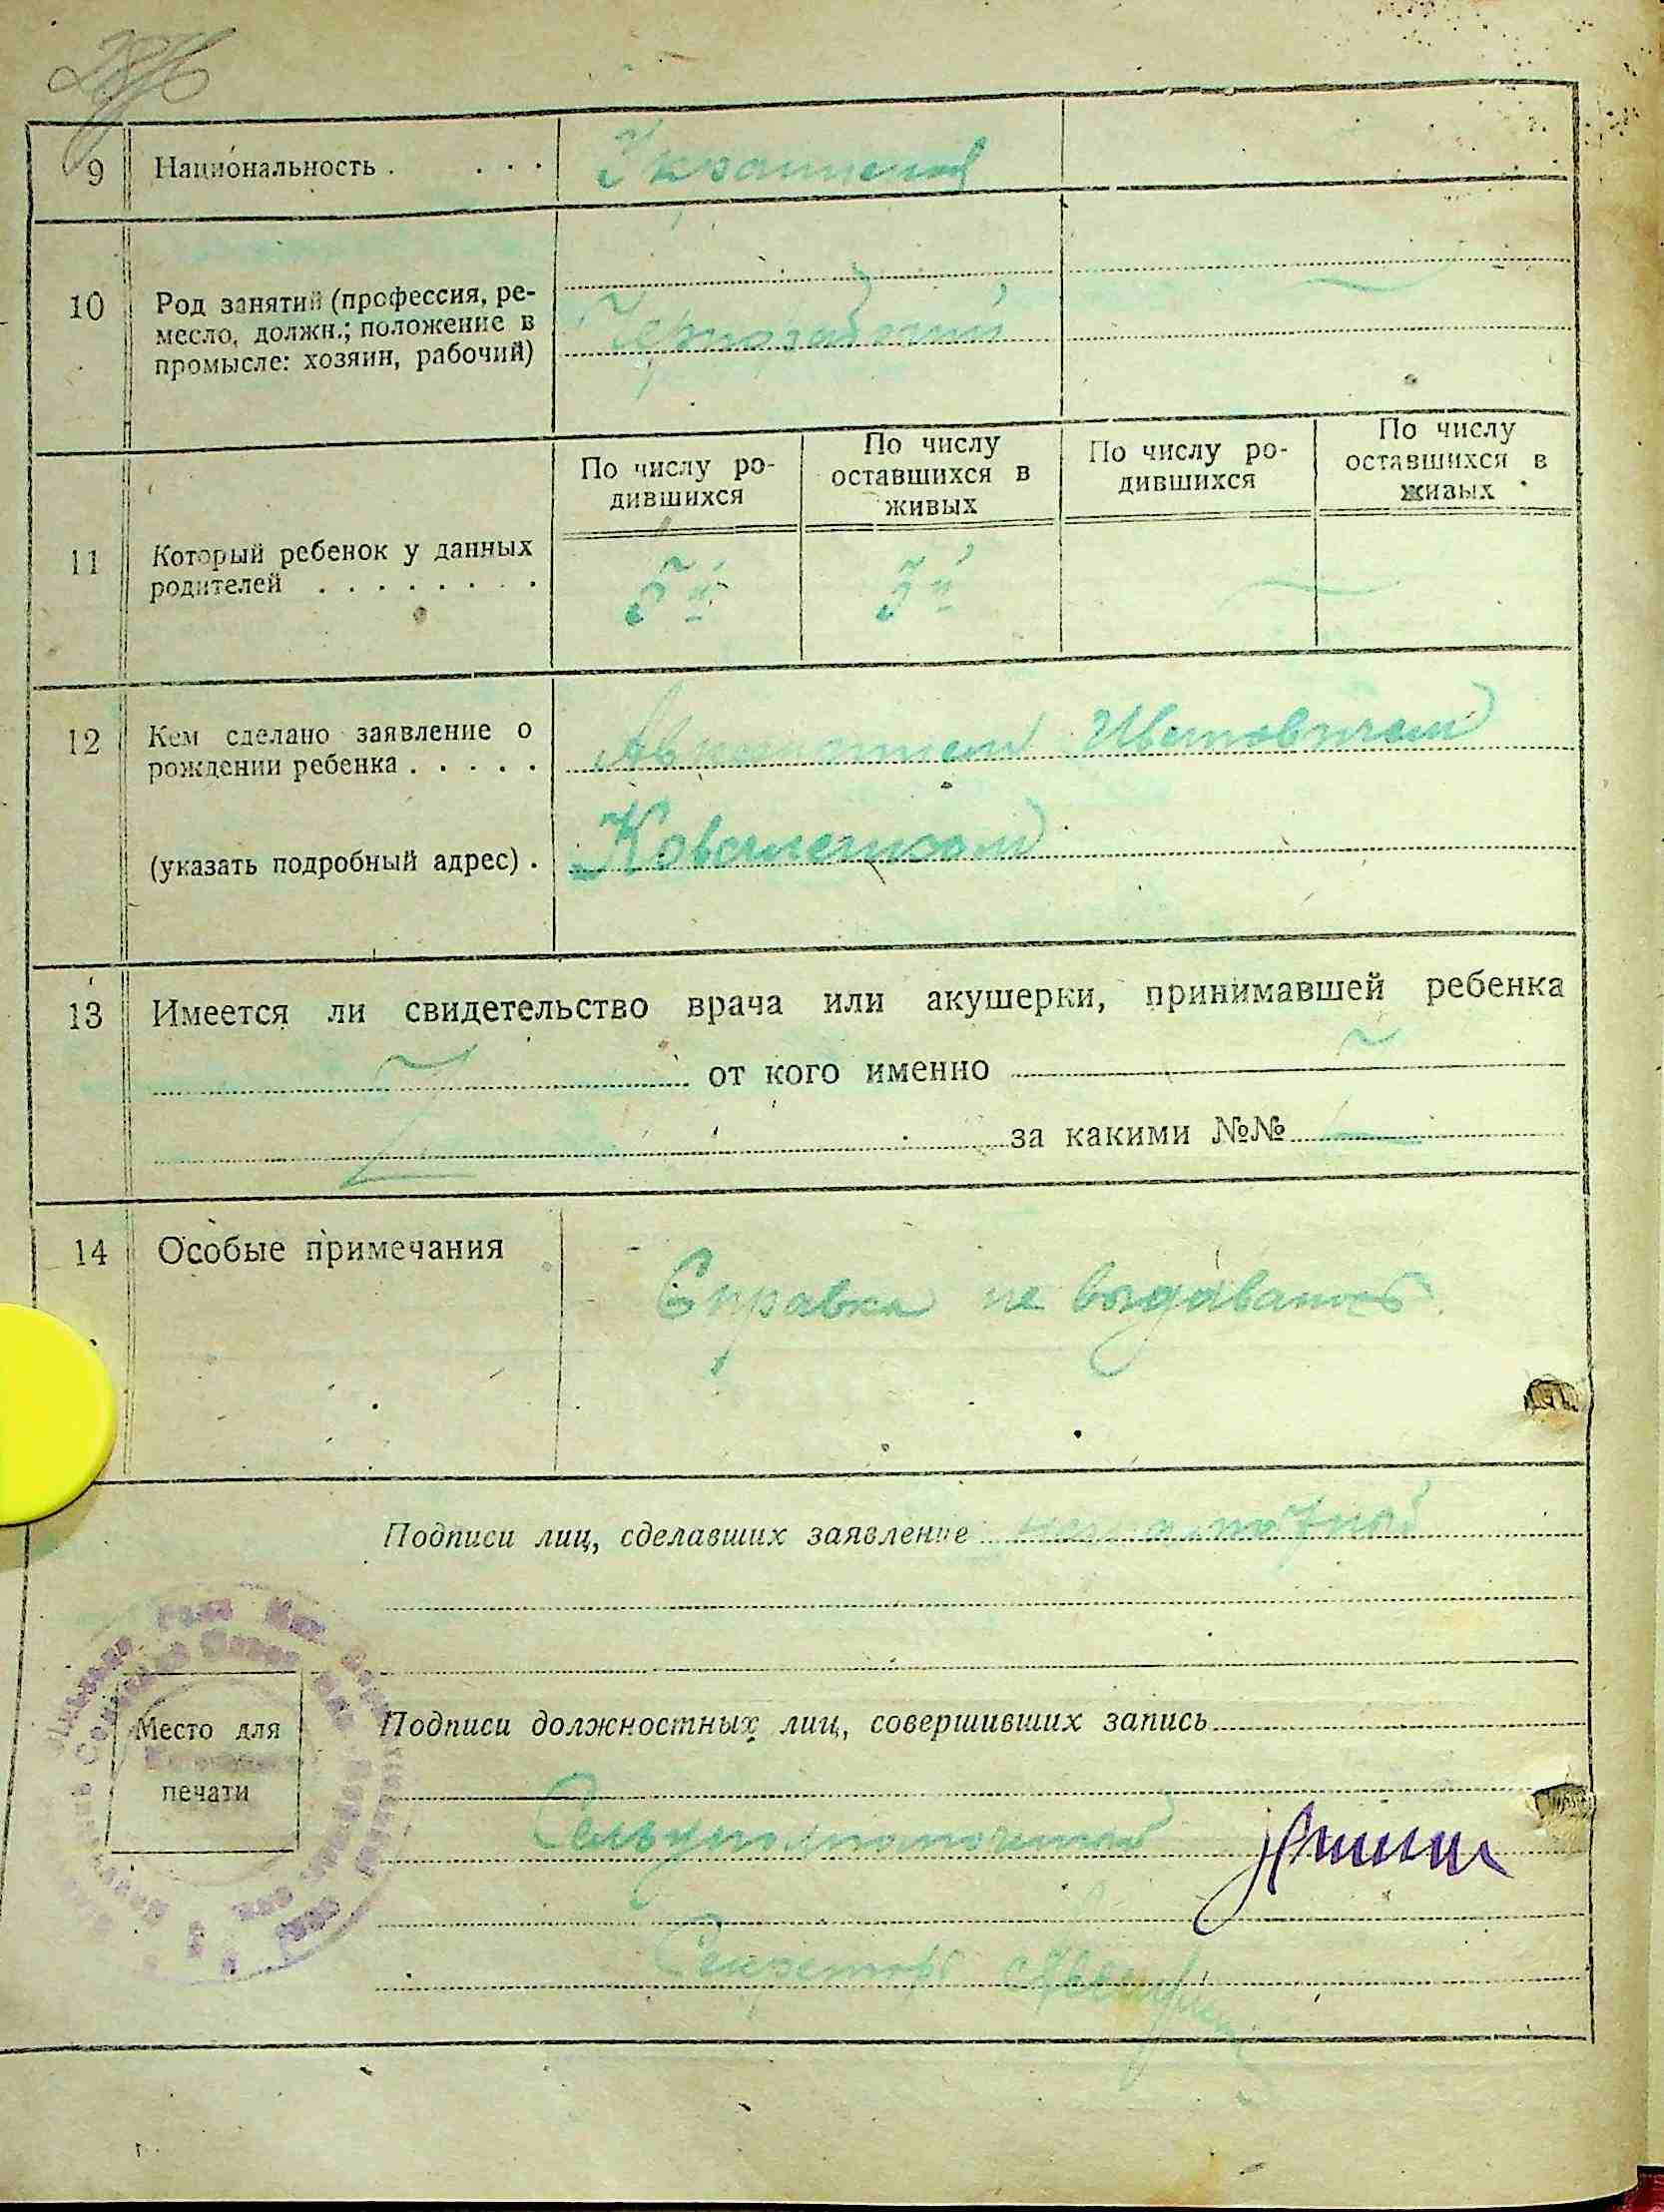 9 Национальность . . . . Украинец
10 Род занятий (профессия, ре-
месло, должн.; положение в
промысле: хозяин, рабочий)
Чернорабочий
По числу ро-
дившихся
По числу
оставшихся в
живых
По числу ро-
дившихся
По числу
оставшихся в
живых
11 Который ребенок у данных
родителей . . . . . . . .
5й 3й
12 Кем сделано заявление о
рождении ребенка . . . . .
(указать подробный адрес) .
13 Имеется ли свидетельство врача или акушерки, принимавшей ребенка
от кого именно
за какими №№
14 Особые примечания
Справка не выдавалась
Подписи лиц, сделавших заявление
Подписи должностных лиц, совершивших запись
Место для
печати
Сельуполномоченный
Секретарь